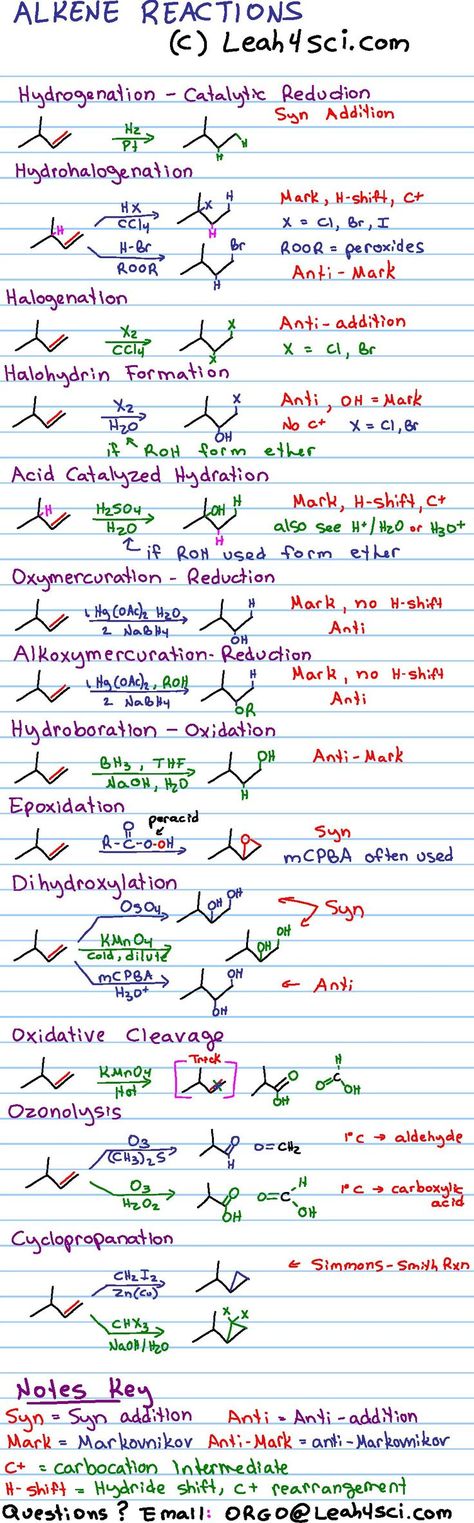 ALKENE REACTIONS
(C) Leah4sci.com
Hydrogenation - Catalytic Reduction
Syn Addition
H2
Pt
H
H
Hydrohalogenation
H
HX
CCl4
X
H
H
Mark, H-shift, C+
X = Cl, Br, I
H-Br
ROOR
Br
H
ROOR = peroxides
Anti-Mark
Halogenation
X2
CCl4
X
X
Anti-addition
X = Cl, Br
Halohydrin Formation
X2
H2O
X
OH
Anti, OH = Mark
No C+ X = Cl, Br
if ROH form ether
Acid Catalyzed Hydration
H
H2SO4
H2O
OH
H
H
Mark, H-shift, C+
also see H+/H2O or H3O+
if ROH used form ether
Oxymercuration - Reduction
1 Hg(OAc)2 H2O
2 NaBH4
H
OH
Mark, no H-shift
Anti
Alkoxymercuration-Reduction
1 Hg(OAc)2, ROH
2 NaBH4
H
OR
Mark, no H-shift
Anti
Hydroboration - Oxidation
BH3, THF
NaOH, H2O
OH
H
Anti-Mark
Epoxidation
peracid
O
R-C-O-OH
O
Syn
mCPBA often used
Dihydroxylation
OsO4
OH
OH
Syn
KMnO4
cold, dilute
OH
OH
mCPBA
H3O+
OH
OH
Anti
Oxidative Cleavage
KMnO4
Hot
Trick
x
O
OH
H
O=C
OH
Ozonolysis
O3
(CH3)2S
O
H
O=CH2
1°C → aldehyde
O3
H2O2
O
OH
O=C
H
OH
1°C → carboxylic
acid
Cyclopropanation
CH2I2
Zn(Cu)
← Simmons-Smith Rxn
CHX3
NaOH/H2O
X X
Notes Key
Syn = Syn addition Anti = Anti-addition
Mark = Markovnikov Anti-Mark = anti-Markovnikov
C+ = carbocation Intermediate
H-shift = Hydride shift, C+ rearrangement
Questions? Email: ORGO@Leah4sci.com